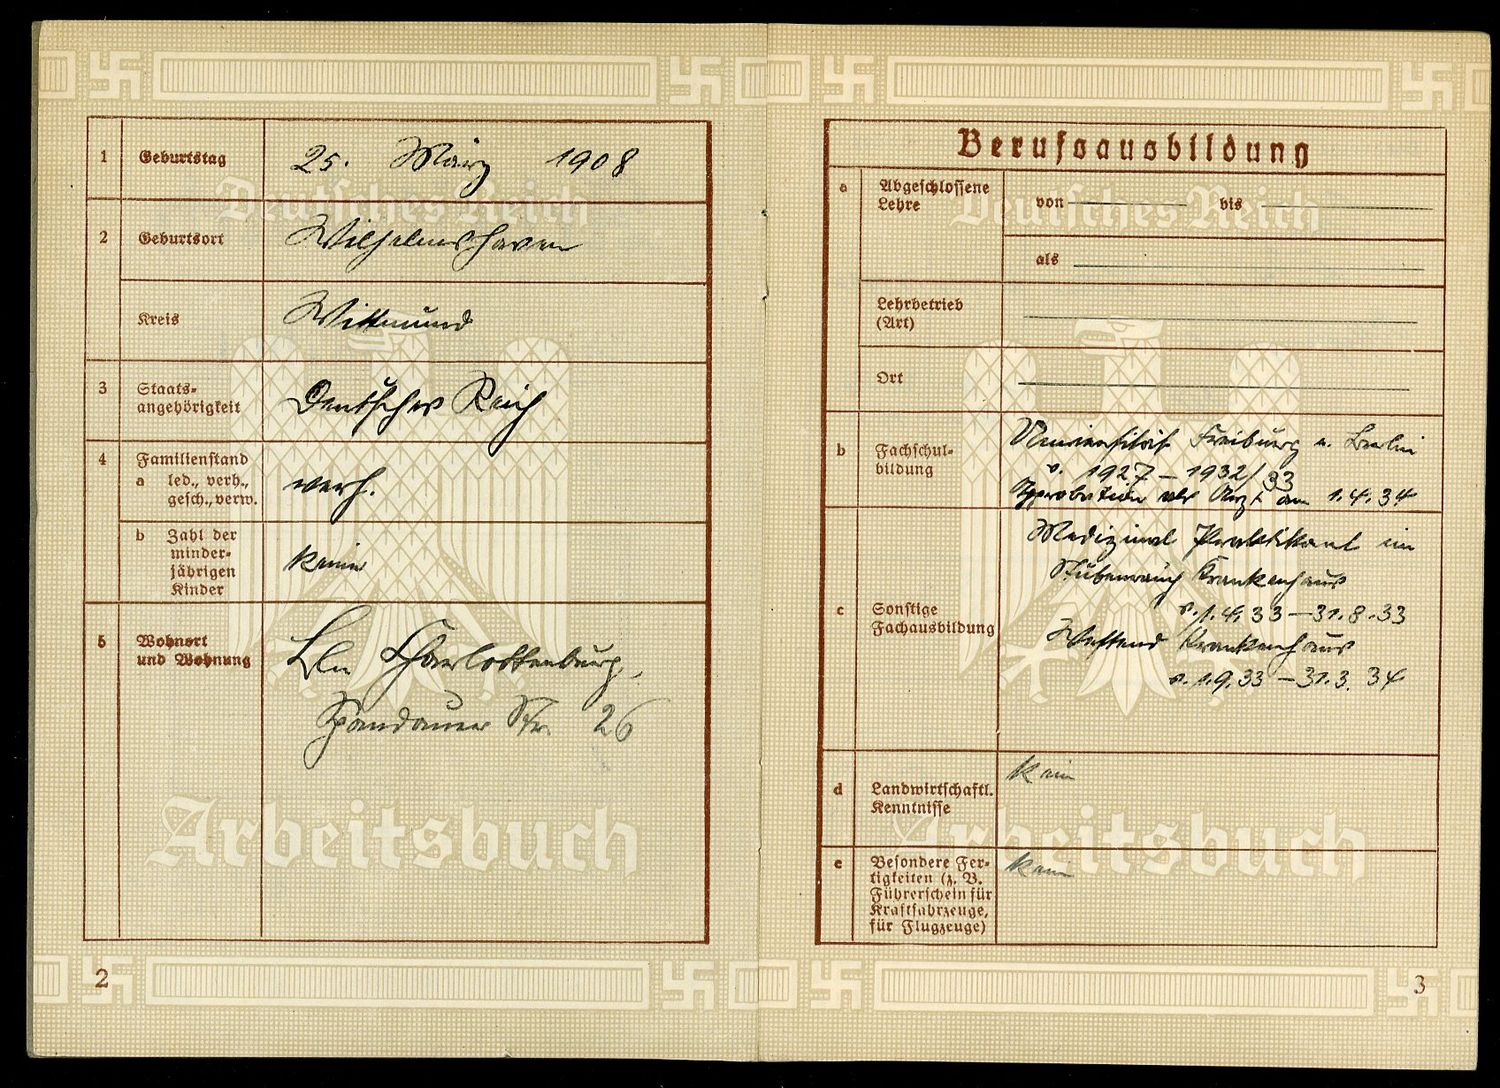 1 Geburtstag 25. März 1908
Deutsches Reich
2 Geburtsort Wilhelmshaven
Kreis Wittmund
3 Staats-
angehörigkeit Deutsches Reich
4 Familienstand
a led., verh.,
gesch., verw. verh.
b Zahl der
minder-
jährigen
Kinder keine
5 Wohnort
und Wohnung Bln. Charlottenburg,
Spandauer Str. 26
Arbeitsbuch
2
Berufsausbildung
a Abgeschlossene
Lehre von bis
Deutsches Reich
als
Lehrbetrieb
(Art)
Ort
b Fachschul-
bildung
Universität Freiburg u. Berlin
v. 1927 – 1932/33
Approbation als Arzt am 1.4.34
c Sonstige
Fachausbildung
Medizinal Praktikant im
Stubenrauch Krankenhaus
v. 1.4.33 – 31.8.33
Westend Krankenhaus
v. 1.9.33 – 31.3.34
d Landwirtschaftl.
Kenntnisse kein
Arbeitsbuch
e Besondere Fer-
tigkeiten (z. B.
Führerschein für
Kraftfahrzeuge,
für Flugzeuge) kein
3